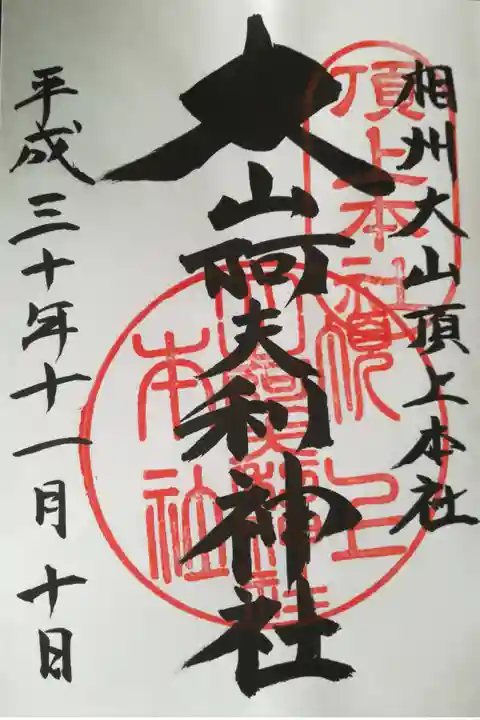 相州大山頂上本社
頂上本社
大山阿夫利神社
平成三十年十一月十日